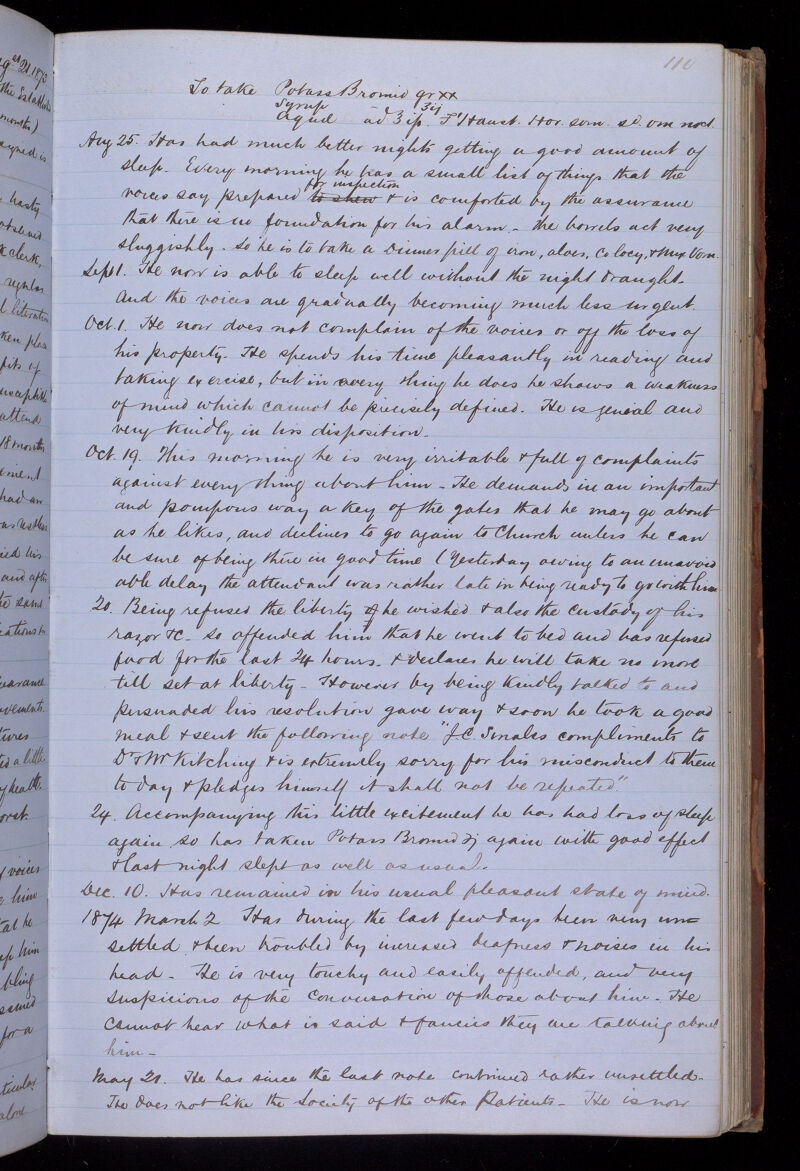 110
To take Potass Bromid gr xx
Syrup ʒij
Aquae ad ℥ ft. Haust. Hor. som. sd. om noct.
Aug 25. Has had much better nights getting a good amount of
sleep. Every morning he has a small list of things that the
for inspection
voices say prepared to shew & is comforted by the assurance
that there is no foundation for his alarm - the bowels act very
sluggishly. So he is to take a Dinner pill of iron, aloes, Colocy, & Nux Vom.
Sept 1. He now is able to sleep well without the night draught.
And the voices are gradually becoming much less urgent.
Oct. 1. He now does not complain of the voices or off the loss of
his property. He spends his time pleasantly in reading and
taking exercise, but in every thing he does he shows a weakness
of mind which cannot be precisely defined. He is genial and
very kindly in his disposition.
Oct. 19. This morning he is very irritable & full of complaints
against every thing about him - He demands in an important
and pompous way a key of the gates that he may go about
as he likes, and declines to go again to Church unless he can
be sure of being there in good time (Yesterday owing to an unavoid
able delay the attendant was rather late in being ready to go with him
20. Being refused the liberty he wished & also the custody of his
razor &c. so offended him that he went to bed and has refused
food for the last 24 hours. & declares he will take no more
till set at liberty - However by being kindly talked to and
persuaded his resolution gave way & soon he took a good
meal & sent the following note "J.C. compliments to
Dr & Mr Kitching & is extremely sorry for his misconduct to them
to day & pledges himself it shall not be repeated".
24. Accompanying this little excitement he has had loss of sleep
again, so has taken Potass Bromid ʒj again with good effect
& last night slept as well as usual.
Dec. 10. Has remained in his usual pleasant state of mind.
1874 March 2 Has during the last few days been very un=
settled & been troubled by increased deafness & noises in his
head - He is very touchy and easily offended, and very
suspicious of the conversation of those about him - He
cannot hear what is said & fancies they are talking about
him -
May 21. He has since the last note continued rather unsettled -
He does not like the Society of the other Patients - He is now